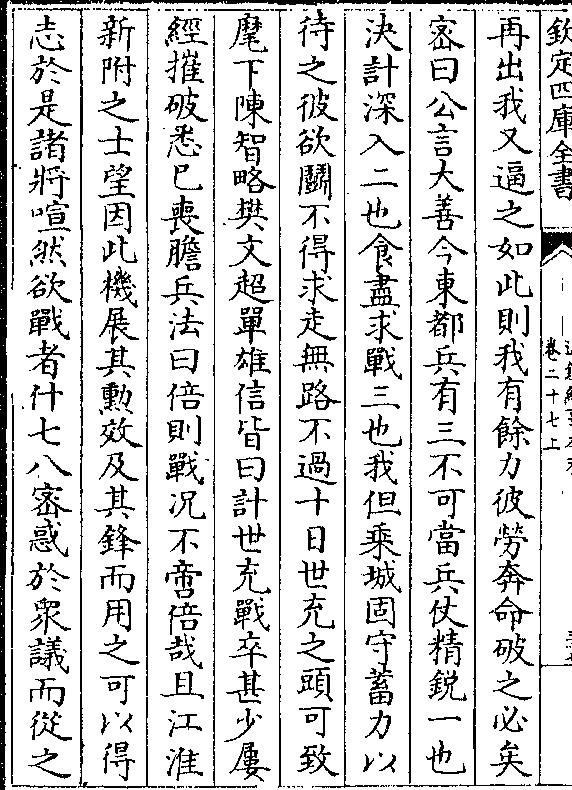 欽定四庫全書
卷二十七上
再出我又逼之如此則我有餘力彼勞奔命破之必矣
密曰公言大善今東都兵有三不可當兵仗精銳一也
決計深入二也食盡求戰三也我但乘城固守蓄力以
待之彼欲鬭不得求走無路不過十日世充之頭可致
麾下陳智略樊文超單雄信皆曰計世充戰卒甚少屢
經摧破悉已喪膽兵法曰倍則戰况不啻倍哉且江淮
新附之士望因此機展其勳效及其鋒而用之可以得
志於是諸將喧然欲戰者什七八密惑於眾議而從之